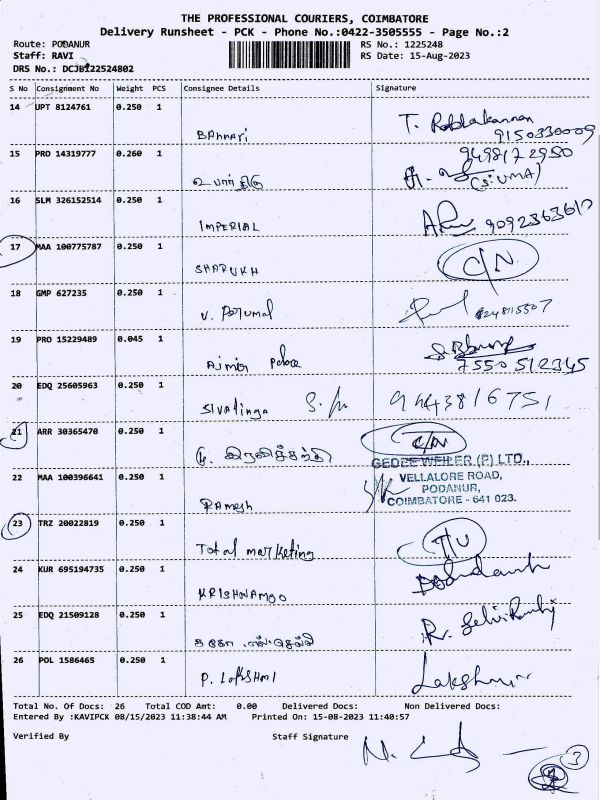 THE PROFESSIONAL COURIERS, COIMBATORE
Delivery Runsheet - PCK - Phone No.:0422-3505555 - Page No.:2
Route: PODANUR RS No.: 1225248
Staff: RAVI RS Date: 15-Aug-2023
DRS No.: DCJBI22524802
S No Consignment No Weight PCS Consignee Details Signature
14 UPT 8124761 0.250 1
BAnnari
9150330009
15 PRO 14319777 0.260 1 9498172950
(S. UMA)
16 SLM 326152514 0.250 1
IMPERIAL
17 MAA 100775787 0.250 1 C/N
SHARUKH
18 GMP 627235 0.250 1
V. Perumal
19 PRO 15229489 0.045 1
7550512345
20 EDQ 25605963 0.250 1
Sivalinga 9443816751
21 ARR 30365470 0.250 1 C/N
GEDEE WEILER (P) LTD.,
22 MAA 100396641 0.250 1 VELLALORE ROAD,
PODANUR,
COIMBATORE - 641 023.
Ramesh
23 TRZ 20022819 0.250 1
Total marketing
24 KUR 695194735 0.250 1
KRISHNAMOO
25 EDQ 21509128 0.250 1
26 POL 1586465 0.250 1
P. Lakshmi Lakshmi
Total No. Of Docs: 26 Total COD Amt: 0.00 Delivered Docs: Non Delivered Docs:
Entered By :KAVIPCK 08/15/2023 11:38:44 AM Printed On: 15-08-2023 11:40:57
Verified By Staff Signature
3